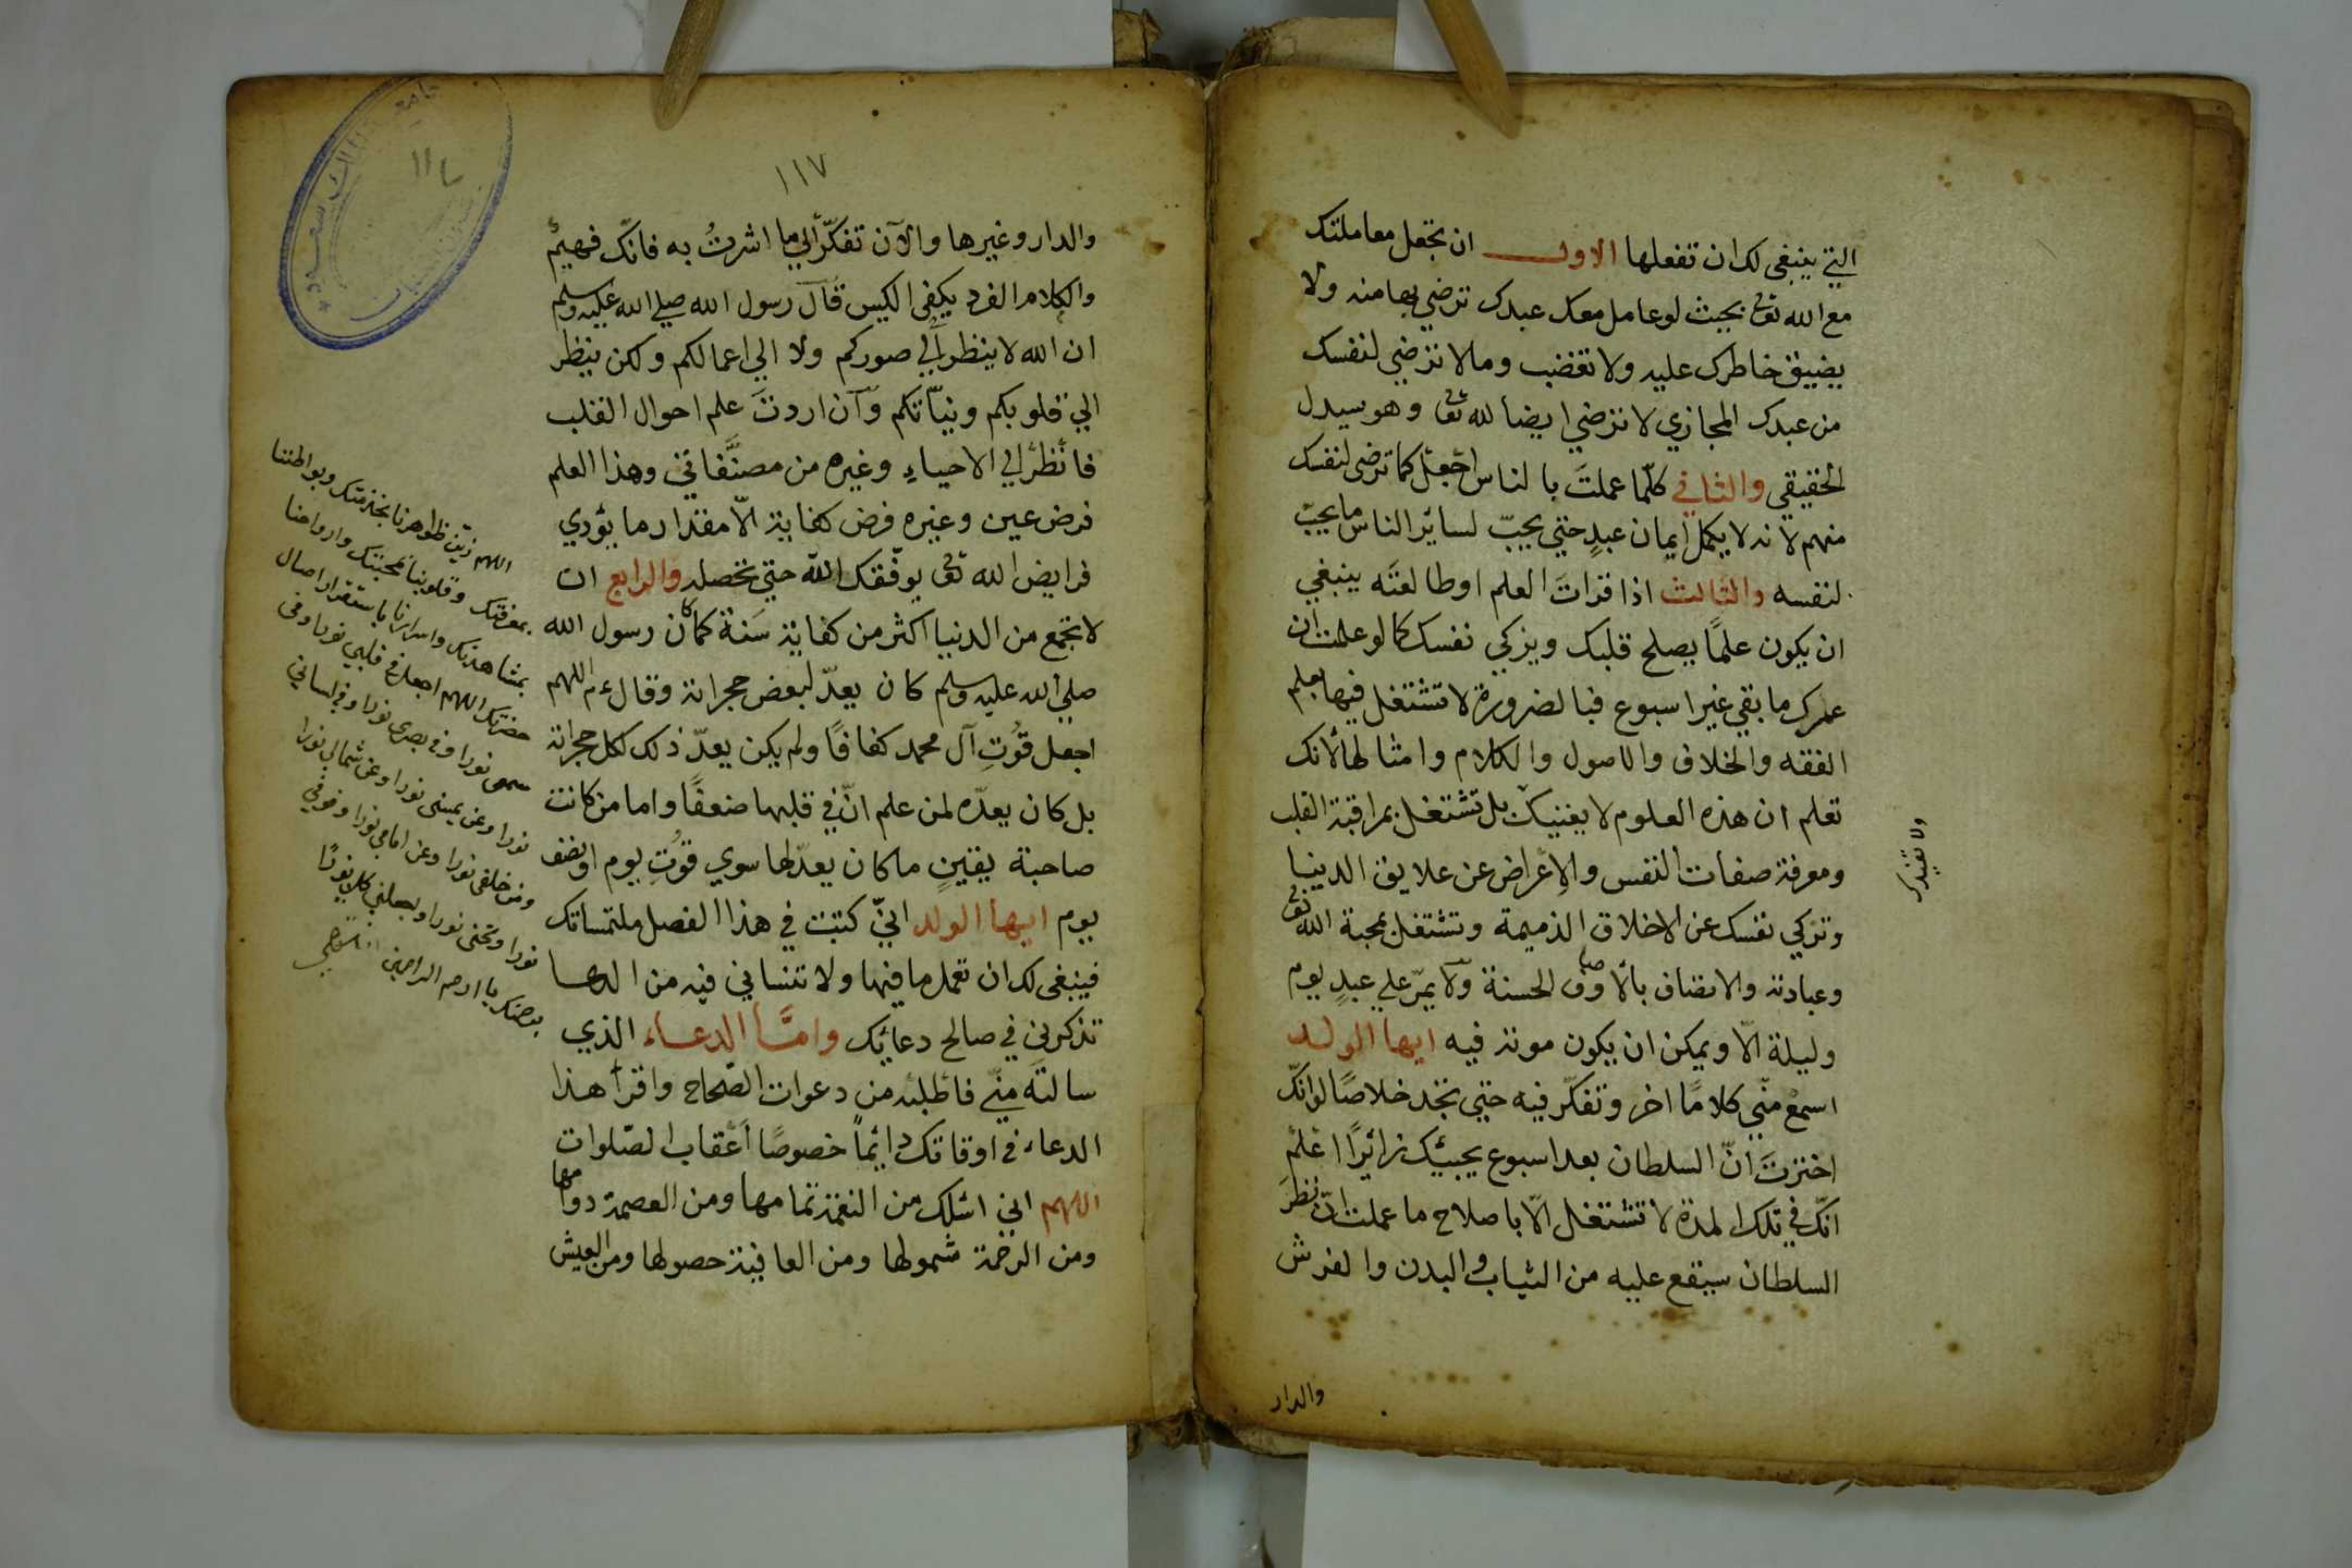 التي ينبغى لك ان تفعلها الاول ان تجعل معاملتك
مع الله تعالى بحيث لو عامل معك عبدك ترضي بها منه ولا
يضيق خاطرك عليه ولا تغضب وما لا ترضي لنفسك
من عبدك المجازي لا ترضي ايضا لله تع وهو سيدك
الحقيقي والثاني كلّما عملتَ بالناس اجعل كما ترضى لنفسك
منهم لانه لا يكمل ايمان عبدٍ حتي يحبّ لسائر الناس ما يحبّ
لنفسه والثالث اذا قراتَ العلم اوطالعتَه ينبغي
ان يكون علمًا يصلح قلبك ويزكي نفسك كما لو علمت ان
عمرك ما بقي غير اسبوع فبالضرورة لا تشتغل فيها بعلم
الفقه والخلاف والاصول والكلام وامثالها لأنك
تعلم ان هذه العلوم لا يغنيك بل تشتغل بمراقبة القلب
ومعرفة صفات النفس والإعراض عن علايق الدنيا
وتزكي نفسك عن الاخلاق الذميمة وتشتغل بمحبة الله تع
وعبادته والاتصاف بالأوصاف الحسنة ولا يمرّ علي عبدٍ يوم
وليلة الّا ويمكن ان يكون موته فيه ايها الولد
اسمع منّي كلامًا اخر وتفكّر فيه حتي تجد خلاصًا لو انّك
اخترتَ انّ السلطان بعد اسبوع يجيئك زائرًا اعلم
انّك في تلك المدة لا تشتغل الّا باصلاح ما عملت انّ نظرَ
السلطان سيقع عليه من الثياب والبدن والفرش
والدار
والدار وغيرها والآن تفكّر الي ما اشرتُ به فانّك فهيم
والكلام الفرد يكفى الكيس قال رسول الله صلي الله عليه وسلم
ان الله لا ينظر الي صوركم ولا الي اعمالكم ولكن ينظر
الي قلوبكم ونيّاتكم وان اردتَ علم احوال القلب
فانظر الي الاحياءِ وغيره من مصنّفاتي وهذا العلم
فرض عين وغيره فرض كفاية الّا مقدار ما يؤدي
فرايض الله تع يوفّقك الله حتي تحصله والرابع ان
لا تجمع من الدنيا اكثر من كفاية سَنة كما كان رسول الله
صلي الله عليه وسلم كان يعدّ لبعض حجراته وقال ع م اللهم
اجعل قُوتِ آل محمد كفافًا ولم يكن يعدّ ذلك لكل حجراته
بل كان يعدّه لمن علم انّ في قلبها ضعفًا واما من كانت
صاحبة يقينٍ ما كان يعدّ لها سوي قُوتِ يوم او نصف
يوم ايها الولد انيّ كتبت في هذا الفصل ملتمساتك
فينبغى لك ان تعمل ما فيها ولا تنساني فيه من
تذكرنى في صالح دعائك وامّا الدعاء الذي
سالتَه منّي فاطلبه من دعوات الصّحاح واقرأ هذا
الدعاء في اوقاتك دائمًا خصوصًا أعقاب الصّلوات
اللهم اني اسئلك من النعمة تمامها ومن العصمة دوامها
ومن الرحمة شمولها ومن العافية حصولها ومن العيش
١١٧
اللهم زيّن ظواهرنا بخدمتك وبواطننا
بمعرفتك وقلوبنا بمحبتك وارواحنا
بمشاهدتك واسرارنا باستقرار اصال
حضرتك اللهم اجعل في قلبي نورا وفى
سمعى نورا وفى بصرى نورا وفي لساني
نورا وعن يمينى نورا وعن شمالي نورا
ومن خلفى نورا وعن امامي نورا وفوقي
نورا وتحتى نورا واجعلني كلا نورًا
يا ارحم الراحمين